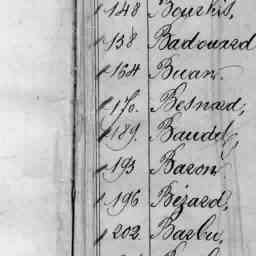 148 Bourhis,
158 Badouard
164 Buan.
170. Besnard,
189. Baudel,
193 Baron
196 Bézard,
202. Barbu,